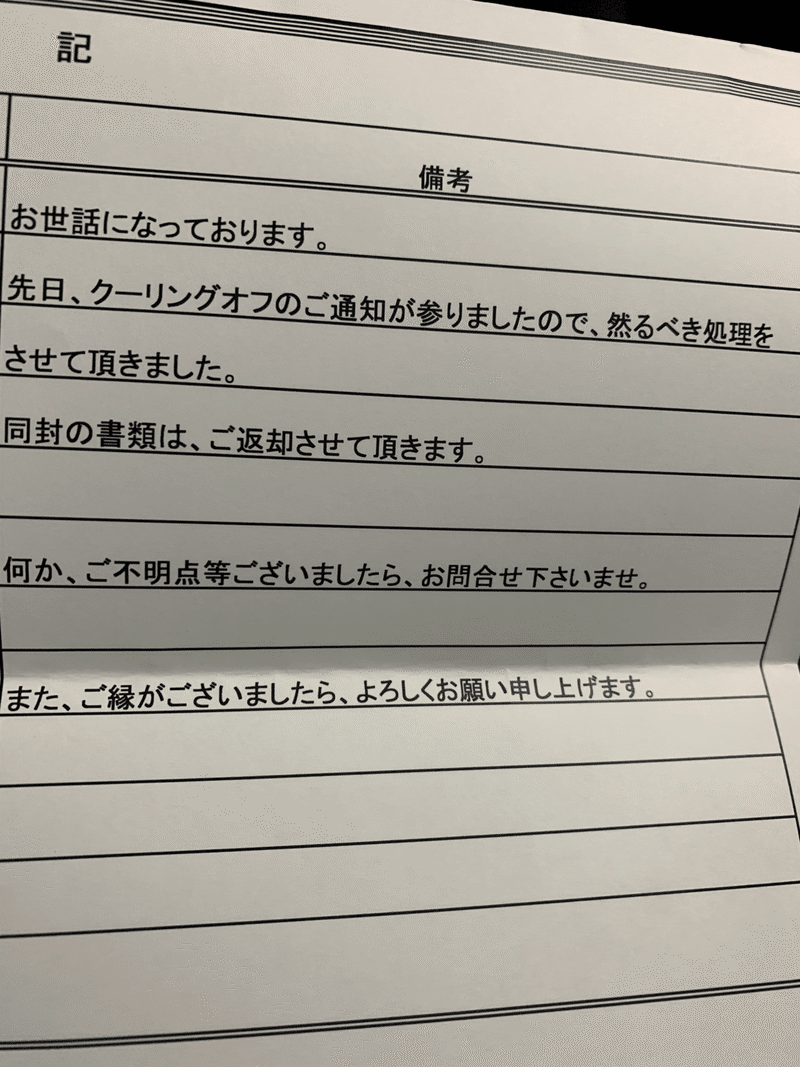 記
備考
お世話になっております。
先日、クーリングオフのご通知が参りましたので、然るべき処理を
させて頂きました。
同封の書類は、ご返却させて頂きます。
何か、ご不明点等ございましたら、お問合せ下さいませ。
また、ご縁がございましたら、よろしくお願い申し上げます。